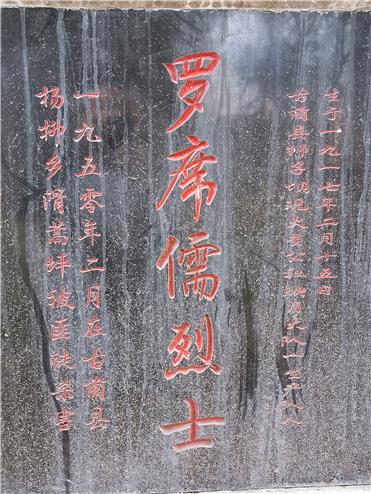 生于一九一七年二月十五日
古蔺县狮子
罗席儒烈士
一九五零年二月在古蔺县
杨柳乡滑蒿坪被匪徒杀害